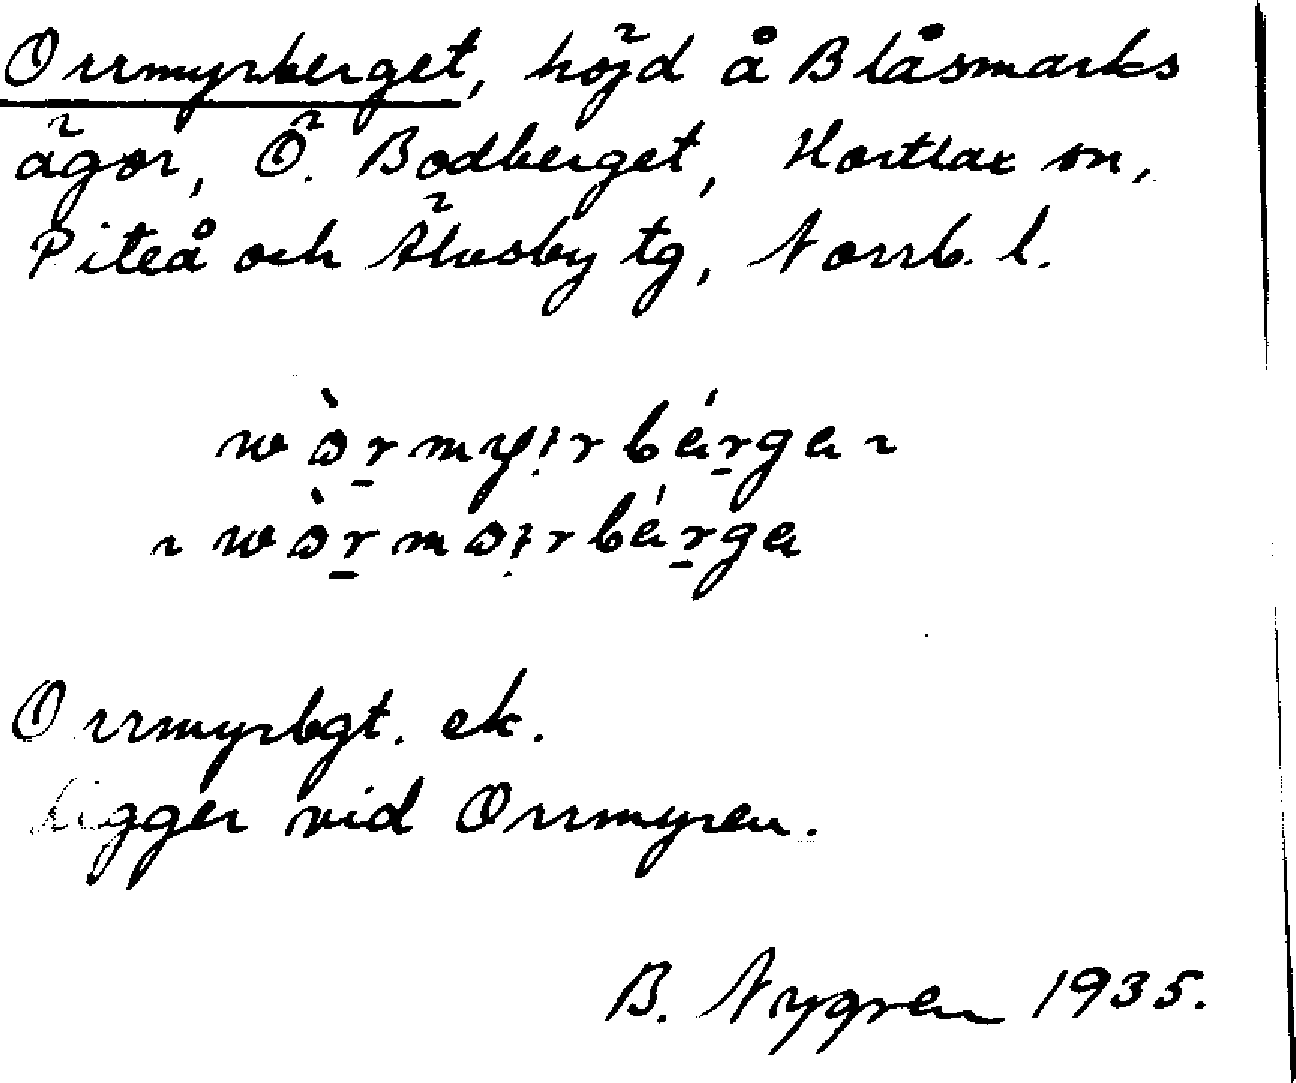 Orrmyrberget, höjd å Blåsmarks
ägor, Ö. Bodberget, Hortlax sn,
Piteå och Älvsby tg, Norrb. l.
wòr̠my:rbér̠ga ~
~ wòr̠mø:rbér̠ga
Orrmyrbgt. ek.
Ligger vid Orrmyren.
B. Nygren 1935.